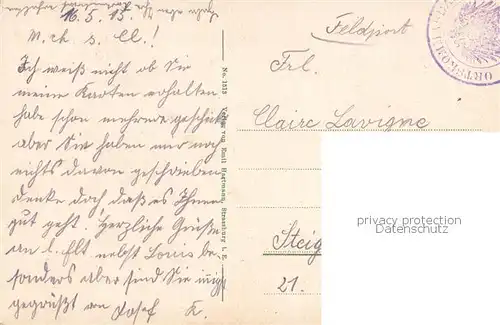 16.5.15.
M. ch. s. Cl.!
Ich weiß nicht ob Sie
meine Karten erhalten
habe schon mehrere geschickt
aber Sie haben mir noch
nichts davon geschrieben
denke doch daß es Ihnen
gut geht! Herzliche Grüße
an l. Elt. nebst Louis be-
sonders aber sind Sie innigst
gegrüßt von Josef K.
No. 1518 Verlag von Emil Hartmann, Strassburg i. E.
Feldpost
Frl.
Claire Lavigne
Steig
21.
ORTSKOM
privacy protection
Datenschutz